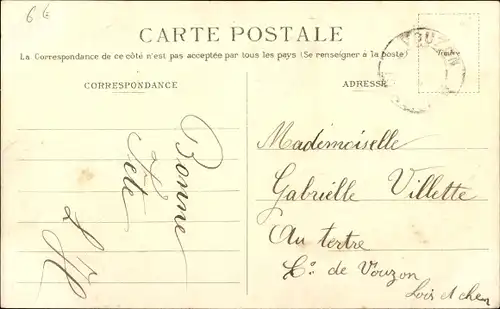 66
CARTE POSTALE
La Correspondance de ce côté n'est pas acceptée par tous les pays (Se renseigner à la poste)
CORRESPONDANCE
ADRESSE
Timbre
VOUZON
Bonne
Fête
Mademoiselle
Gabrielle Villette
Au tertre
Cº. de Vouzon
Loir et cher